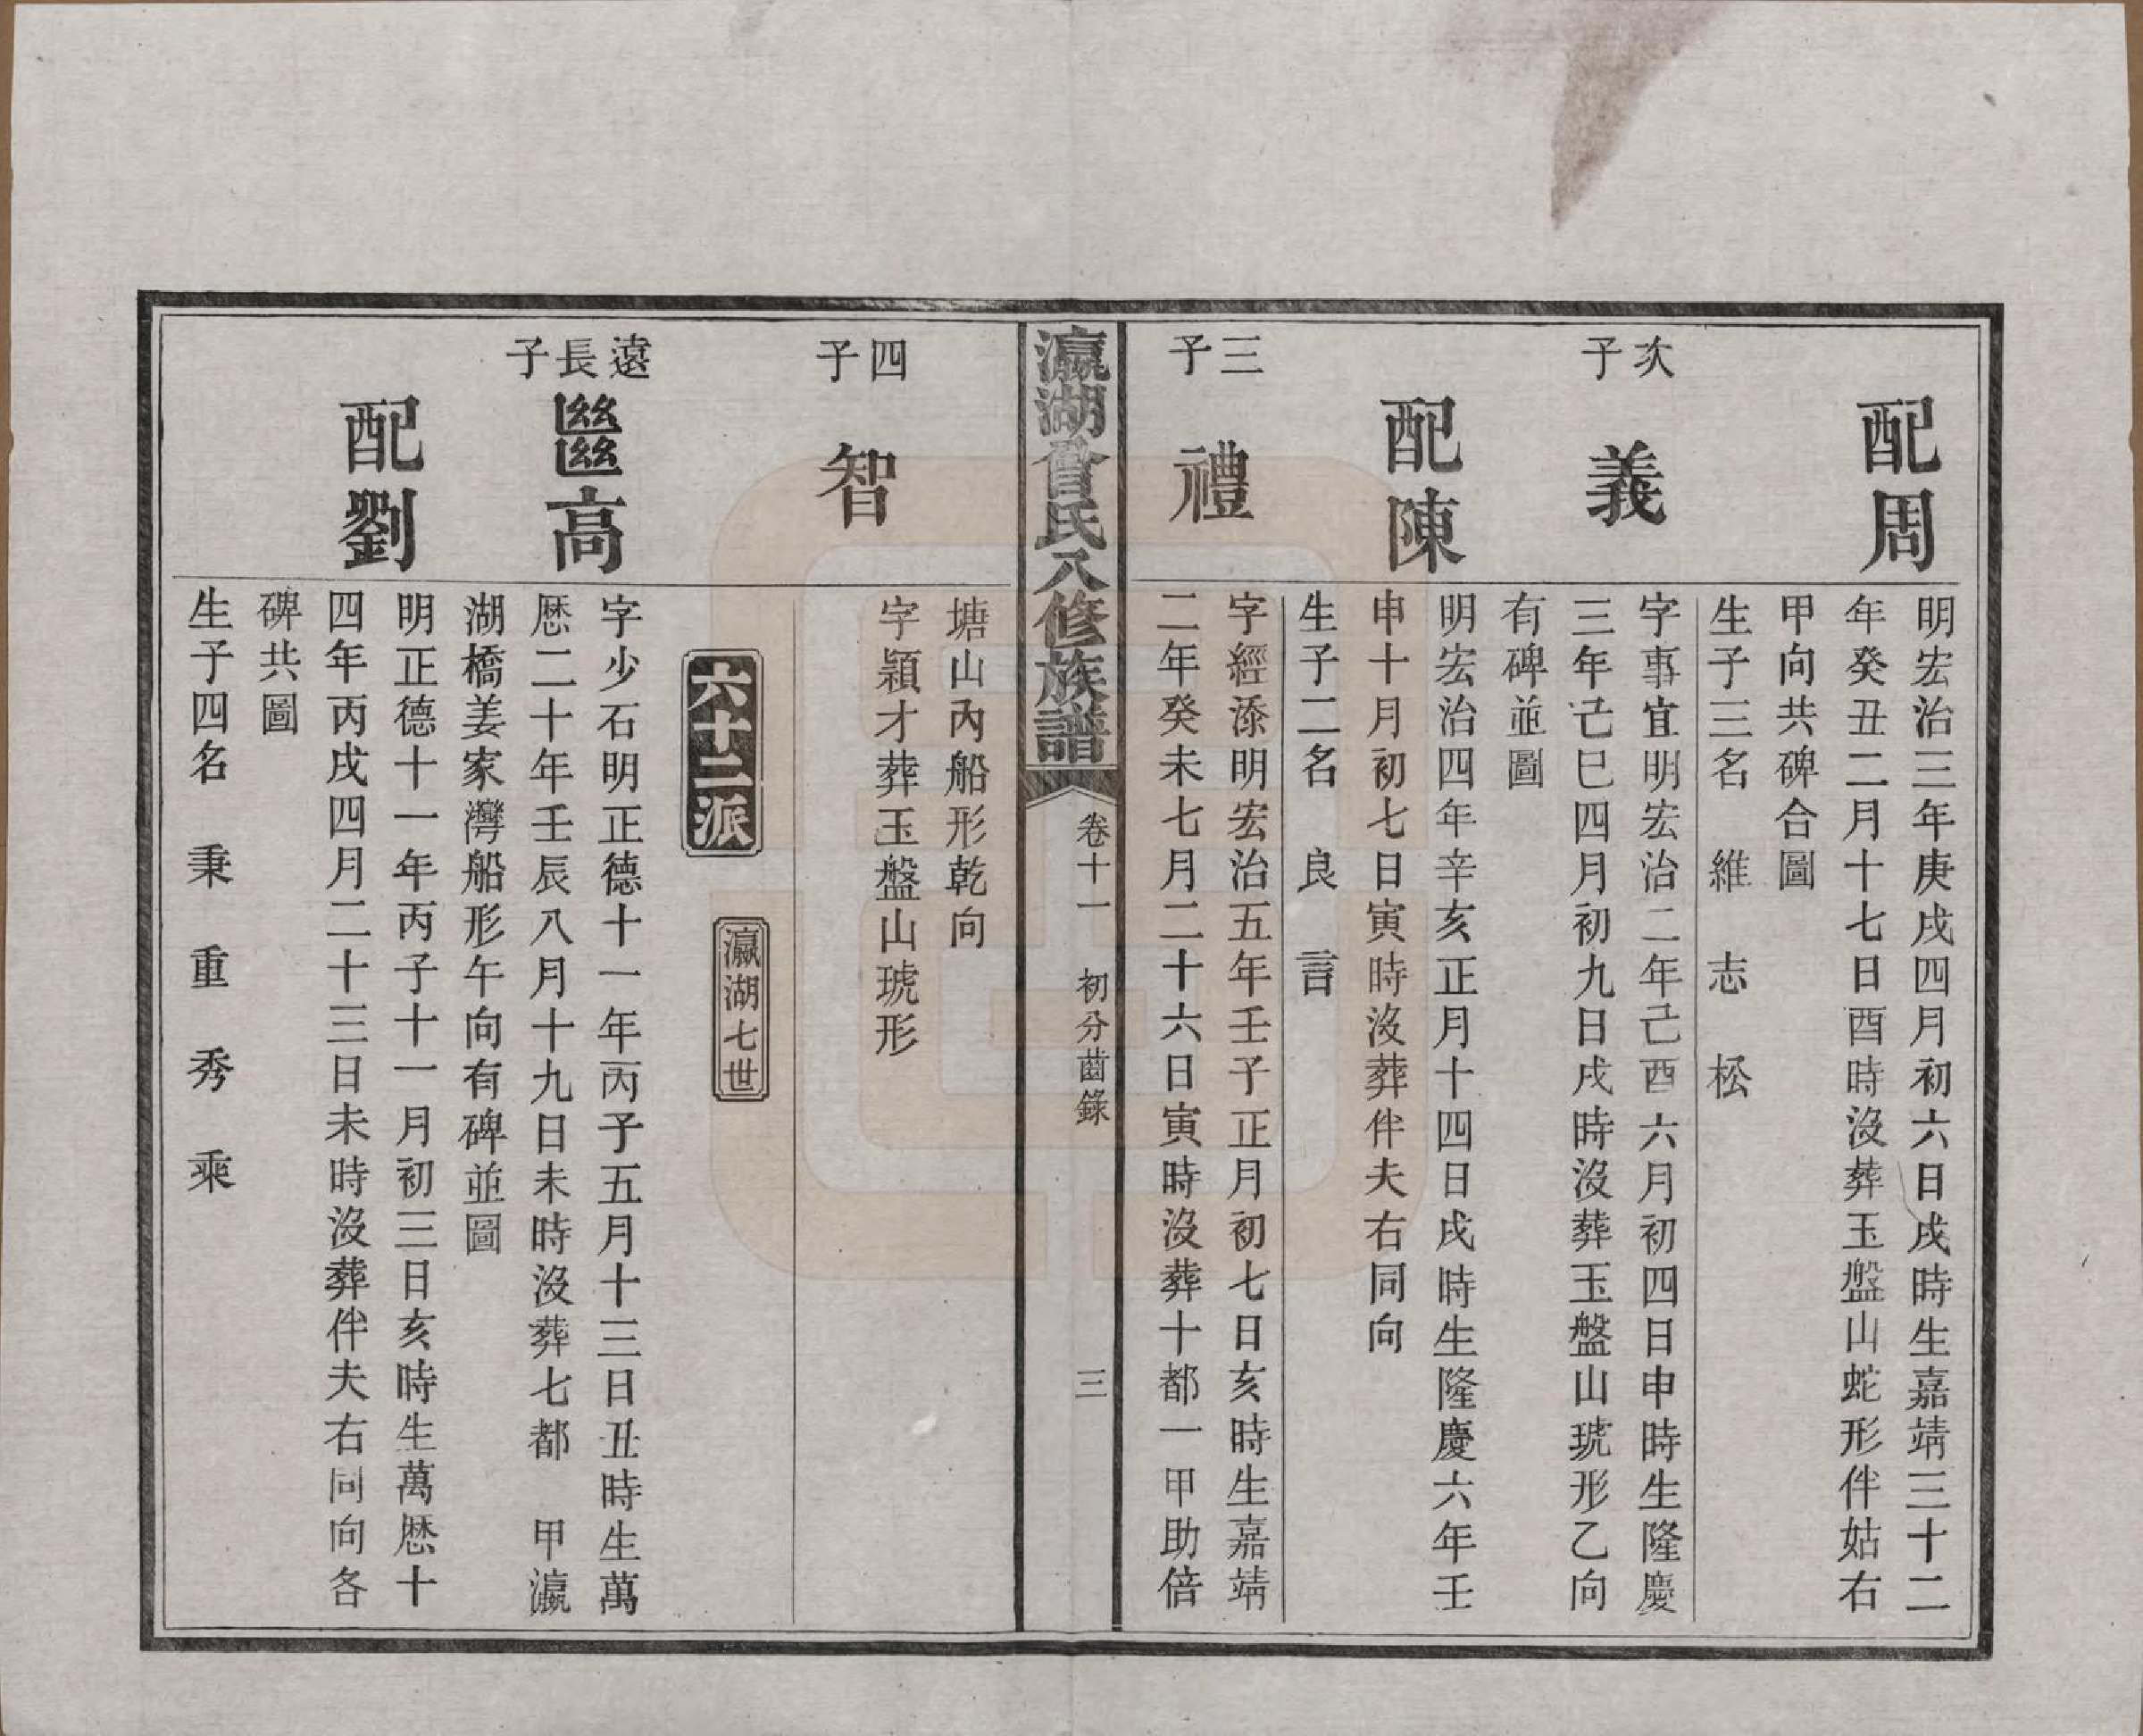 配周
明宏治三年庚戌四月初六日戌時生嘉靖三十二
年癸丑二月十七日酉時沒葬玉盤山蛇形伴姑右
甲向共碑合圖
生子三名　維　志　松
次子
義
字事宜明宏治二年己酉六月初四日申時生隆慶
三年己巳四月初九日戌時沒葬玉盤山琥形乙向
有碑並圖
配陳
明宏治四年辛亥正月十四日戌時生隆慶六年壬
申十月初七日寅時沒葬伴夫右同向
生子二名　良　言
三子
禮
字經添明宏治五年壬子正月初七日亥時生嘉靖
二年癸未七月二十六日寅時沒葬十都一甲助倍
瀛湖曾氏八修族譜
卷十一　初分齒錄
三
塘山內船形乾向
四子
智
字穎才葬玉盤山琥形
六十二派
瀛湖七世
遠長子
高
字少石明正德十一年丙子五月十三日丑時生萬
歷二十年壬辰八月十九日未時沒葬七都　甲瀛
湖橋姜家灣船形午向有碑並圖
配劉
明正德十一年丙子十一月初三日亥時生萬歷十
四年丙戌四月二十三日未時沒葬伴夫右同向各
碑共圖
生子四名　秉　重　秀　乘